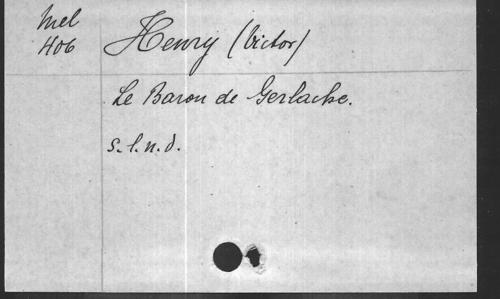 Mel
406
Henry (Victor)
Le Baron de Gerlache.
s.l.n.d.